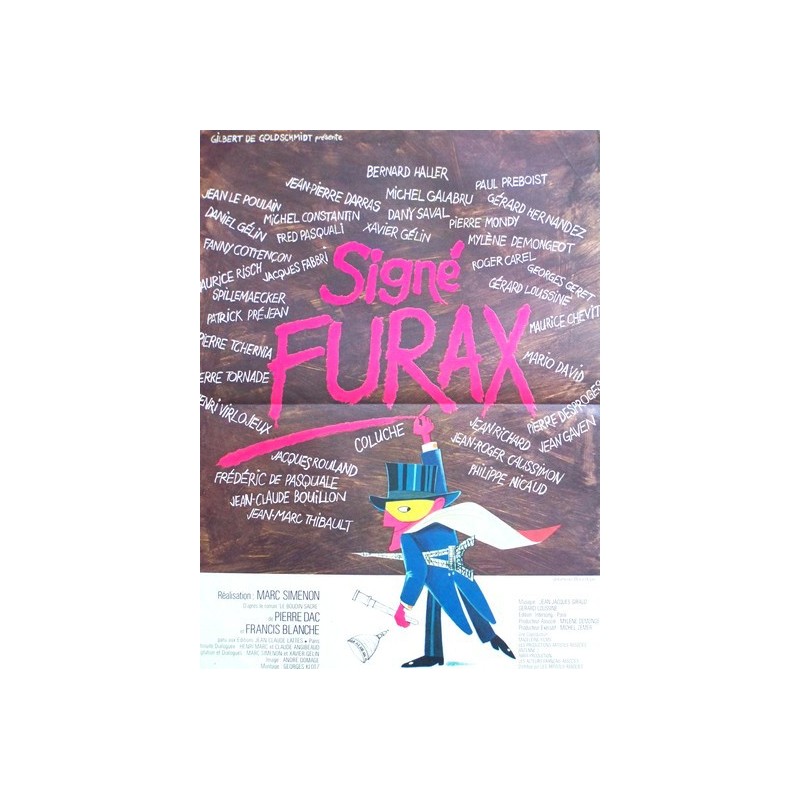 GILBERT DE GOLDSCHMIDT présente
BERNARD HALLER
JEAN-PIERRE DARRAS
PAUL PREBOIST
JEAN LE POULAIN
MICHEL GALABRU
GÉRARD HERNANDEZ
DANIEL GÉLIN
MICHEL CONSTANTIN
DANY SAVAL
PIERRE MONDY
FRED PASQUALI
XAVIER GÉLIN
MYLÈNE DEMONGEOT
FANNY COTTENÇON
JACQUES FABBRI
ROGER CAREL
GEORGES GERET
AURICE RISCH
GÉRARD LOUSSINE
SPILLEMAECKER
PATRICK PRÉJEAN
MAURICE CHEVIT
Signé
FURAX
PIERRE TCHERNIA
MARIO DAVID
ERRE TORNADE
PIERRE DESPROGES
ENRI VIRLOJEUX
COLUCHE
JEAN RICHARD
JEAN GAVEN
JACQUES ROULAND
JEAN-ROGER CAUSSIMON
FRÉDÉRIC DE PASQUALE
PHILIPPE NICAUD
JEAN-CLAUDE BOUILLON
JEAN-MARC THIBAULT
Réalisation : MARC SIMENON
D'après le roman LE BOUDIN SACRÉ
de PIERRE DAC
et FRANCIS BLANCHE
MARC SIMENON et XAVIER GÉLIN
Image : ANDRÉ DOMAGE
Montage : GEORGES KLOTZ